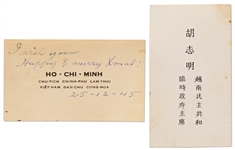 I wish you
Happy & merry Xmas!
HO - CHI - MINH
CHU-TICH CHINH-PHU LAM-THOI
VIET-NAM DAN-CHU CONG-HOA
25-12-45
胡志明
越南民主共和
臨時政府主席